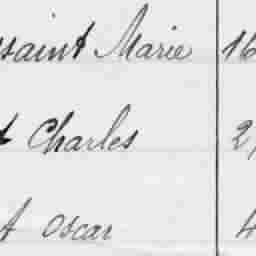 ssaint Marie 16
t Charles 2
t Oscar 4